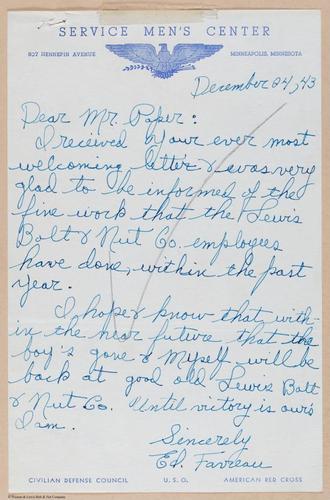 SERVICE MEN'S CENTER
807 HENNEPIN AVENUE MINNEAPOLIS, MINNESOTA
December 24, 43
Dear Mr. Paper:
I received your ever most
welcoming letter & was very
glad to be informed of the
fine work that the Lewis
Bolt & Nut Co. employees
have done, within the past
year.
I hope & know that with-
in the near future that the
boy's gone & myself will be
back at good old Lewis Bolt
& Nut Co. Until victory is ours
I am.
Sincerely
Ed. Favreau
CIVILIAN DEFENSE COUNCIL U.S.O. AMERICAN RED CROSS